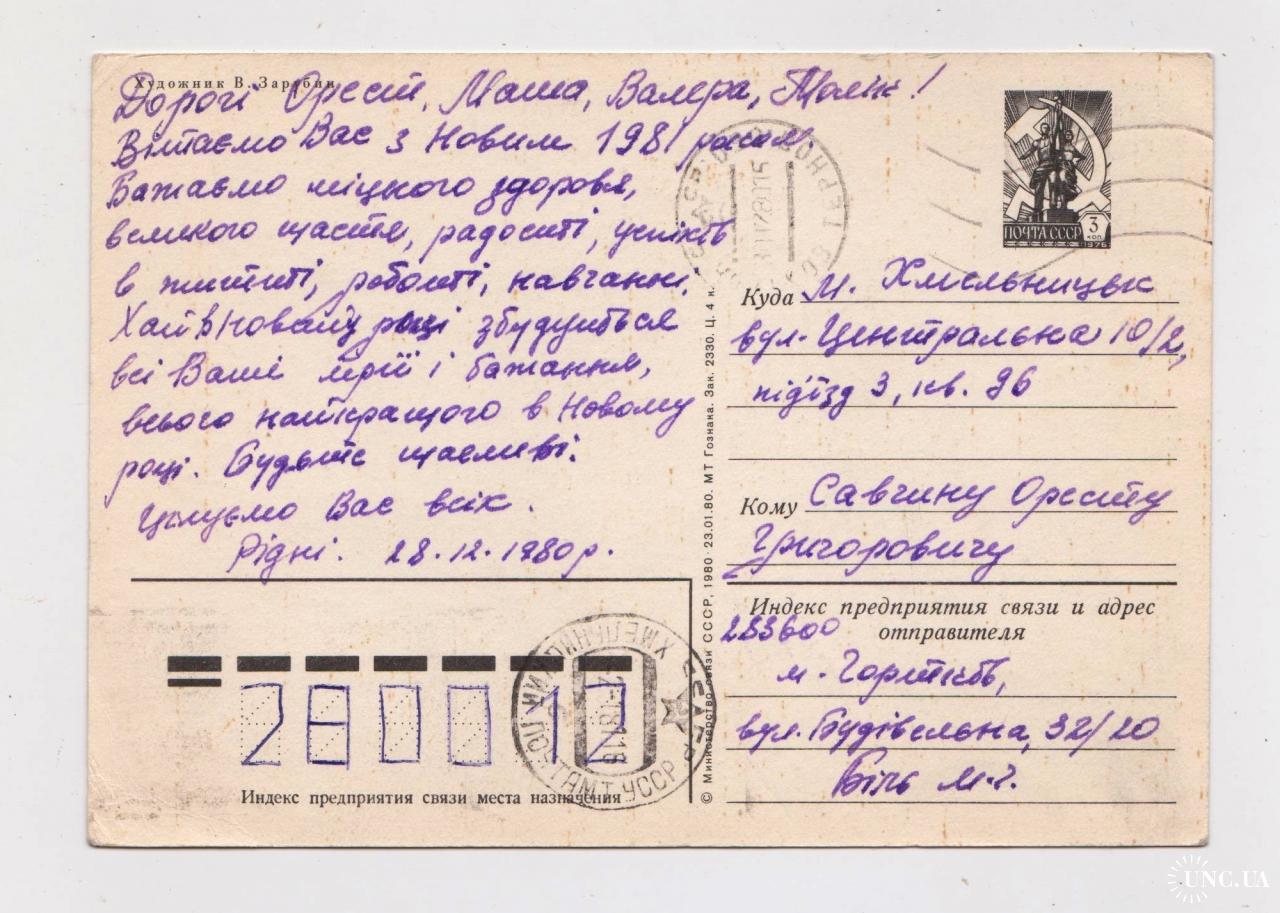 Художник В. Зарубин
Дорогі Орест, Маша, Валера, Толік!
Вітаємо Вас з Новим 1981 роком
Бажаємо міцного здоровя,
великого щастя, радості, успіхів
в житті, роботі, навчанні.
Хай в Новому році збудуться
всі Ваші мрії і бажання,
всього найкращого в Новому
році. Будьте щасливі.
Цілуємо Вас всіх.
Рідні. 28.12.1980р.
ПОЧТА СССР 3 коп
1976
Куда м. Хмельницьк
вул. Центральна 10/2,
під'їзд 3, кв. 96
Кому Савчину Оресту
Григоровичу
Индекс предприятия связи и адрес
отправителя
283600
м. Чортків,
вул. Будівельна, 32/20
Біль М.Г.
© Министерство связи СССР, 1980 · 23.01.80. МТ Гознака. Зак. 2330. Ц. 4 к.
280012
ХМЕЛЬНИЦКИЙ ПОЧТАМТ УССР
Индекс предприятия связи места назначения
UNC.UA